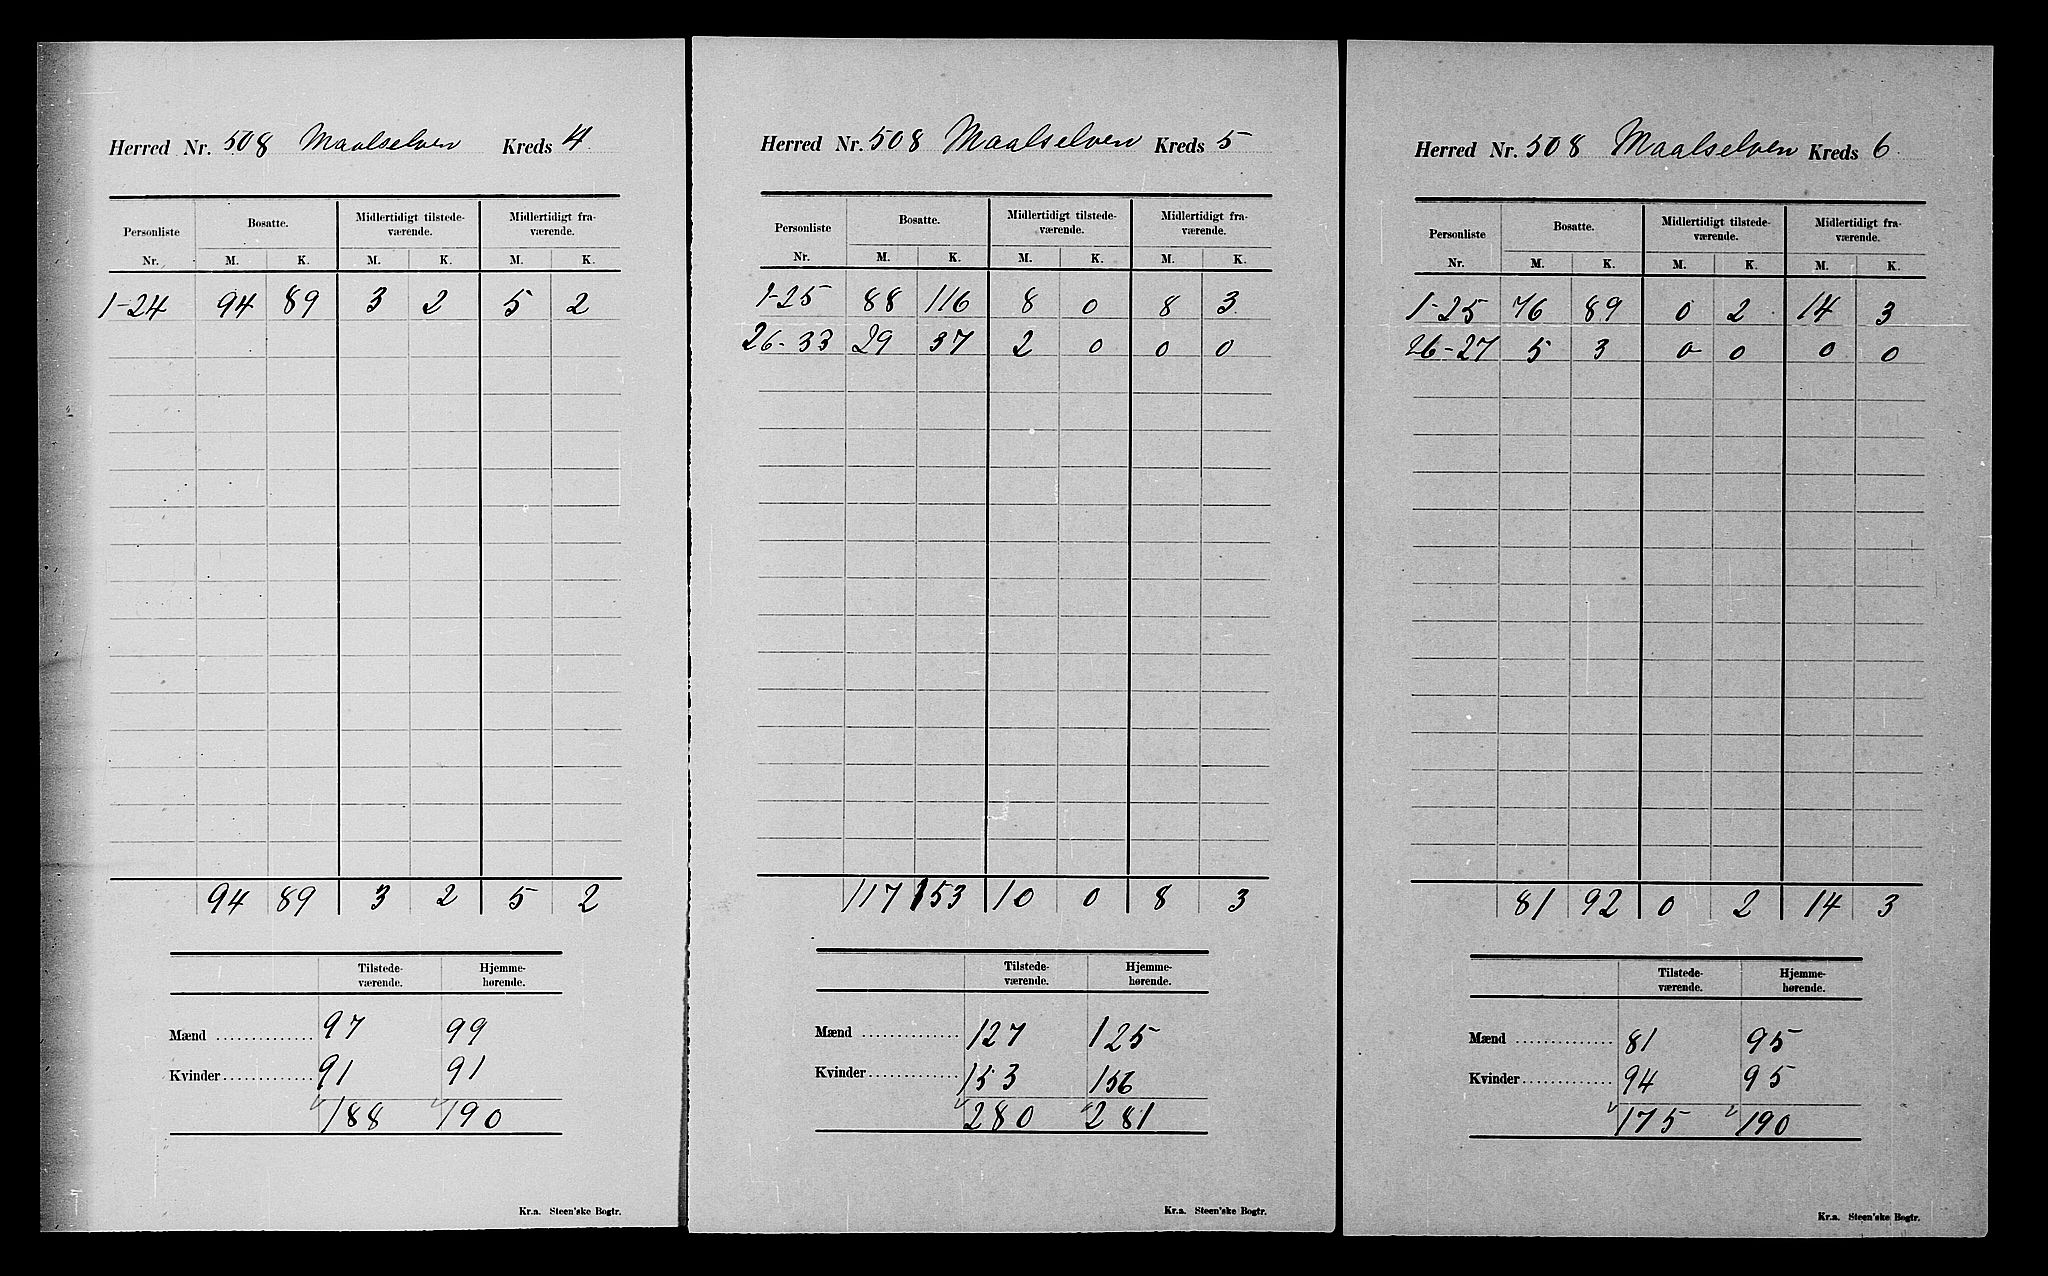 Herred Nr. 508 Maalselven Kreds 4
Personliste Nr. | Bosatte. | Midlertidigt tilstedeværende. | Midlertidigt fraværende.
M. K. M. K. M. K.
1-24 94 89 3 2 5 2
94 89 3 2 5 2
Tilstede-værende. Hjemme-hørende.
Mænd 97 99
Kvinder 91 91
188 190
Kr.a. Steen'ske Bogtr.
Herred Nr. 508 Maalselven Kreds 5
Personliste Nr. | Bosatte. | Midlertidigt tilstede-værende. | Midlertidigt fra-værende.
M. K. M. K. M. K.
1-25 88 116 8 0 8 3
26-33 29 37 2 0 0 0
117 153 10 0 8 3
Tilstede-værende. Hjemme-hørende.
Mænd 127 125
Kvinder 153 156
280 281
Kr.a. Steen'ske Bogtr.
Herred Nr. 508 Maalselven Kreds 6
Personliste Nr. | Bosatte. | Midlertidigt tilstede-værende. | Midlertidigt fra-værende.
M. K. M. K. M. K.
1-25 76 89 0 2 14 3
26-27 5 3 0 0 0 0
81 92 0 2 14 3
Tilstede-værende. Hjemme-hørende.
Mænd 81 95
Kvinder 94 95
175 190
Kr.a. Steen'ske Bogtr.